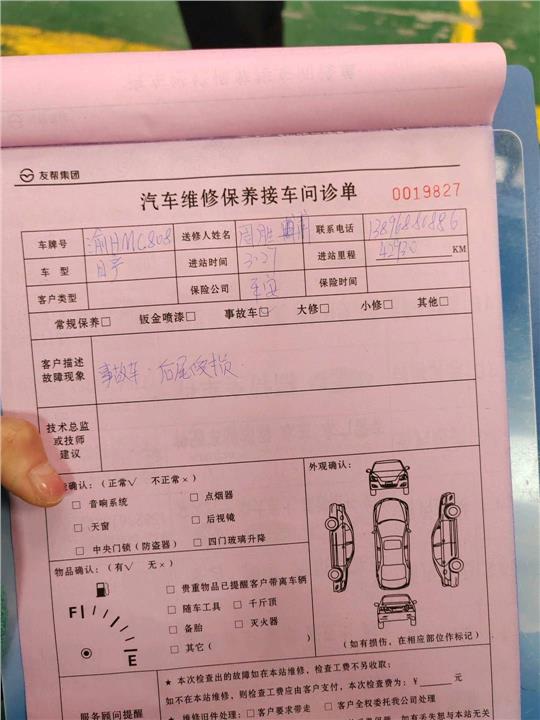 友帮集团
汽车维修保养接车问诊单 0019827
车牌号 渝 MC808 送修人姓名 周胜 联系电话
车型 日产 进站时间 3.27 进站里程 42920 KM
客户类型 保险公司 平安 保险时间
常规保养□ 钣金喷漆□ 事故车☑ 大修□ 小修□ 其他□
客户描述
故障现象
事故车. 后尾受损.
技术总监
或技师
建议
确认:(正常√ 不正常×) 外观确认:
□ 音响系统 □ 点烟器
□ 天窗 □ 后视镜
□ 中央门锁(防盗器) □ 四门玻璃升降
物品确认:(有√ 无×)
□ 贵重物品已提醒客户带离车辆
F □ 随车工具 □ 千斤顶
□ 备胎 □ 灭火器
E □ 其它( )
(如有损伤,在相应部位作标记)
服务顾问提醒
★ 本次检查出的故障如在本站维修,检查工费不另收取;
如不在本站维修,则检查工费应由客户支付,本次检查费为:¥ 元
★ 维修旧件处理:□ 客户要求带走 □ 客户全权委托我公司处理